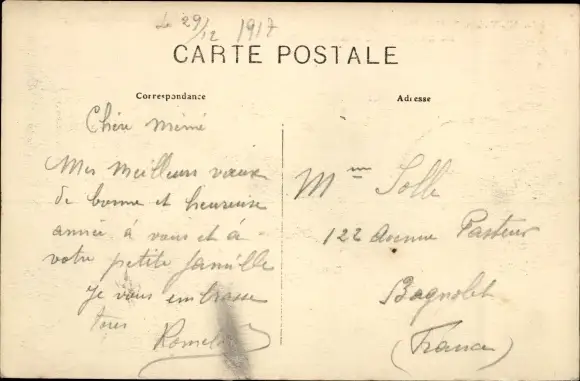 Le 29/12 1917
CARTE POSTALE
Correspondance
Adresse
Chère mémé
Mes meilleurs vœux
de bonne et heureuse
année à vous et à
votre petite famille
Je vous embrasse
tous
Mme Solle
122 Avenue Pasteur
Bagnolet
(France)